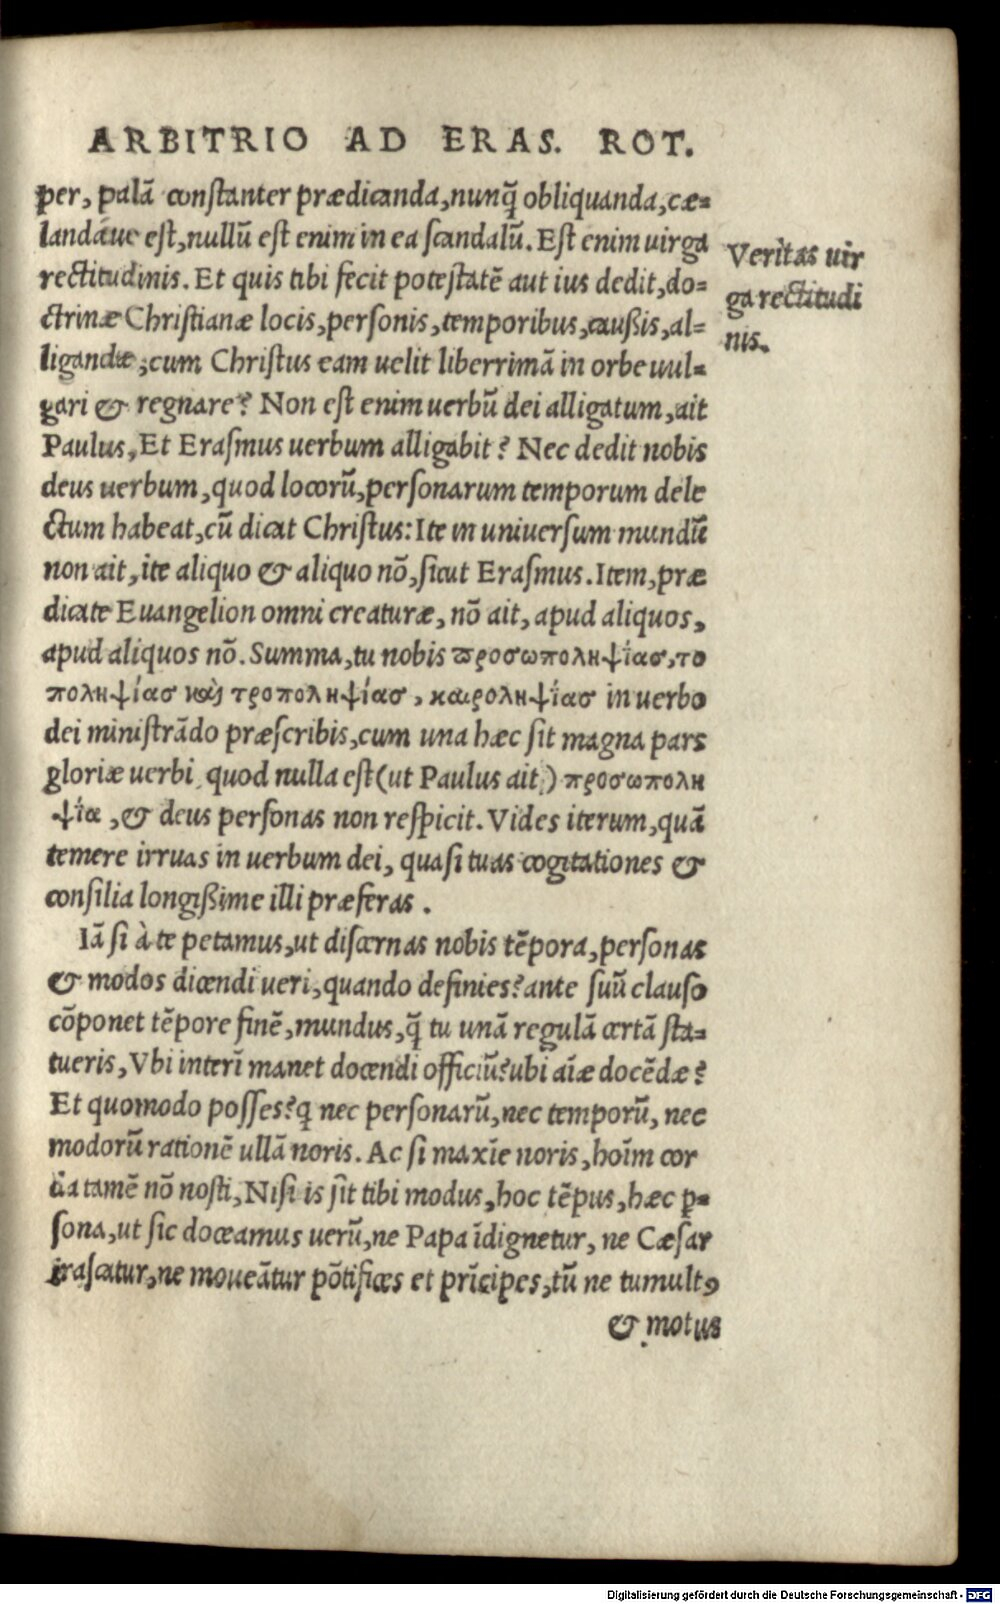 ARBITRIO AD ERAS. ROT.
per, palã constanter prædicanda, nunq̃ obliquanda, cæ=
landáue est, nullũ est enim in ea scandalũ. Est enim uirga
rectitudinis. Et quis tibi fecit potestatẽ aut ius dedit, do=
ctrinæ Christianæ locis, personis, temporibus, caußis, al=
ligandæ, cum Christus eam uelit liberrimã in orbe uul=
gari & regnare? Non est enim uerbũ dei alligatum, ait
Paulus, Et Erasmus uerbum alligabit? Nec dedit nobis
deus uerbum, quod locorũ, personarum temporum dele
ctum habeat, cũ dicat Christus: Ite in uniuersum mundũ
non ait, ite aliquo & aliquo nõ, sicut Erasmus. Item, præ
dicate Euangelion omni creaturæ, nõ ait, apud aliquos,
apud aliquos nõ. Summa, tu nobis ϖροσωποληψίας, το
ποληψίας καὶ τροποληψίας, καιροληψίας in uerbo
dei ministrãdo præscribis, cum una hæc sit magna pars
gloriæ uerbi, quod nulla est (ut Paulus ait) προσωπολη
ψία, & deus personas non respicit. Vides iterum, quã
temere irruas in uerbum dei, quasi tuas cogitationes &
consilia longißime illi præferas.
Iã si à te petamus, ut discernas nobis tẽpora, personas
& modos dicendi ueri, quando definies? ante suũ clauso
cõponet tẽpore finẽ, mundus, q̃ tu unã regulã certã sta=
tueris, Vbi interĩ manet docendi officiũ? ubi aĩæ docẽdæ?
Et quomodo posses? q̃ nec personarũ, nec temporũ, nec
modorũ rationẽ ullã noris. Ac si maxĩe noris, hoĩm cor
da tamẽ nõ nosti, Nisi is sit tibi modus, hoc tẽpus, hæc p̱=
sona, ut sic doceamus uerũ, ne Papa ĩdignetur, ne Cæsar
irascatur, ne moueãtur põtifices et prĩcipes, tũ ne tumultꝰ
& motus
Veritas uir
ga rectitudi
nis.
Digitalisierung gefördert durch die Deutsche Forschungsgemeinschaft - DFG